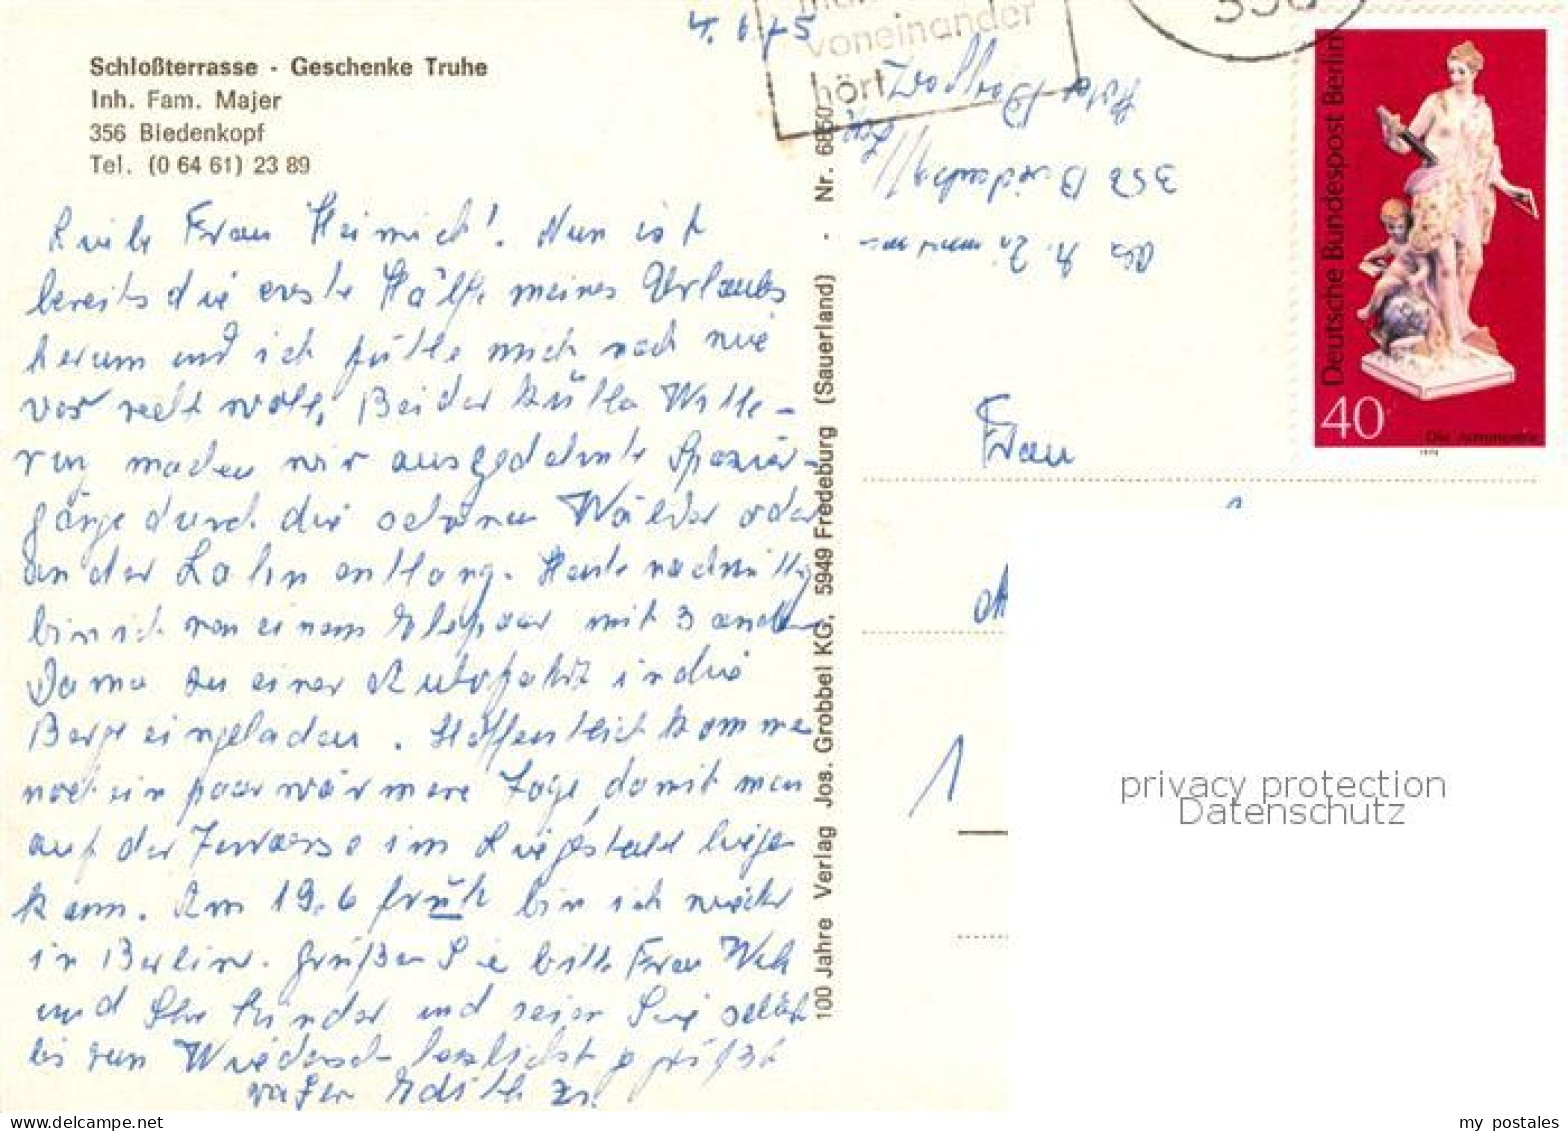 4. 6. 75
Schloßterrasse - Geschenke Truhe
Inh. Fam. Majer
356 Biedenkopf
Tel. (0 64 61) 23 89
Frau Heimich! Nun ist
bereits die erste Hälfte meines Urlaubs
herum und ich fühle mich nach wie
vor recht wohl. Bei der kühlen Witte-
rung machen wir ausgedehnte Spazier-
gänge durch die schönen Wälder oder
an der Lahn entlang. Heute nachmittag
bin ich von einem Ehepaar mit 3 anderen
Damen zu einer Autofahrt in die
Berge eingeladen. Hoffentlich kommen
noch ein paar wärmere Tage, damit man
auf der Terrasse im Liegestuhl liegen
kann. Am 19.6 früh bin ich wieder
in Berlin. Grüßen Sie bitte Frau
und Ihre Kinder und seien Sie selbst
bis zum Wiedersehen herzlichst gegrüßt
Edith
100 Jahre Verlag Jos. Grobbel KG, 5949 Fredeburg (Sauerland) · Nr. 6850
voneinander
hört
356 Biedenkopf/Lahn
Frau
1
Deutsche Bundespost Berlin
40
Die Astronomie
1974
privacy protection
Datenschutz
my postales